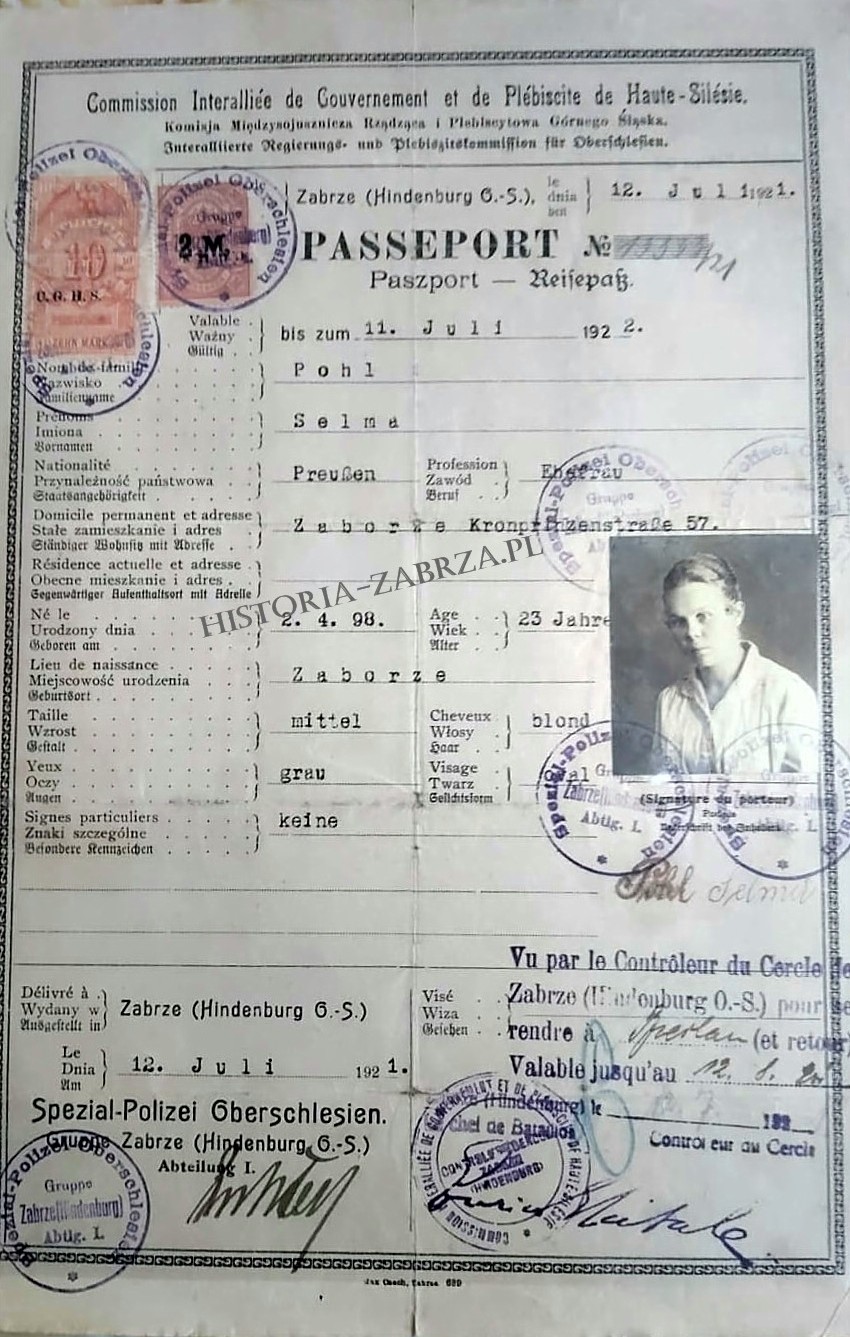 Commission Interalliée de Gouvernement et de Plébiscite de Haute-Silésie.
Komisja Międzysojusznicza Rządząca i Plebiscytowa Górnego Śląska.
Interalliierte Regierungs- und Plebiszitskommission für Oberschlesien.
Zabrze (Hindenburg O.-S.), le dnia den 12. Juli 1921.
10
O. G. H. S.
ZEHN MARK
2 M.
Spezial-Polizei Oberschlesien
Gruppe
PASSEPORT № /21
Paszport — Reisepaß.
Valable
Ważny
Gültig
bis zum 11. Juli 1922.
Nom de famille
Nazwisko
Familienname
Pohl
Prénoms
Imiona
Vornamen
Selma
Nationalité
Przynależność państwowa
Staatsangehörigkeit
Preußen
Profession
Zawód
Beruf
Ehefrau
Domicile permanent et adresse
Stałe zamieszkanie i adres
Ständiger Wohnsitz mit Adresse
Zaborze Kronprinzenstraße 57.
Résidence actuelle et adresse
Obecne mieszkanie i adres
Gegenwärtiger Aufenthaltsort mit Adresse
HISTORIA-ZABRZA.PL
Né le
Urodzony dnia
Geboren am
2. 4. 98.
Age
Wiek
Alter
23 Jahre
Lieu de naissance
Miejscowość urodzenia
Geburtsort
Zaborze
Taille
Wzrost
Gestalt
mittel
Cheveux
Włosy
Haar
blond
Yeux
Oczy
Augen
grau
Visage
Twarz
Gesichtsform
Signes particuliers
Znaki szczególne
Besondere Kennzeichen
keine
Spezial-Polizei Oberschlesien
Gruppe
Zabrze (Hindenburg)
Abtlg. I.
(Signature du porteur)
Pohl Selma
Délivré à
Wydany w
Ausgestellt in
Zabrze (Hindenburg O.-S.)
Le
Dnia
Am
12. Juli 1921.
Visé
Wiza
Gesehen
Vu par le Contrôleur du Cercle de
Zabrze (Hindenburg O.-S.) pour se
rendre à (et retour)
Valable jusqu'au 12. 8.
(Hindenburg) le 192
chef de Bataillon
Controleur du Cercle
COMMISSION INTERALLIÉE DE GOUVERNEMENT ET DE PLÉBISCITE DE HAUTE-SILÉSIE
ZABRZE
(HINDENBURG)
Spezial-Polizei Oberschlesien.
Gruppe Zabrze (Hindenburg O.-S.)
Abteilung I.
Spezial-Polizei Oberschlesien
Gruppe
Zabrze (Hindenburg)
Abtlg. I.
Zabrze 689